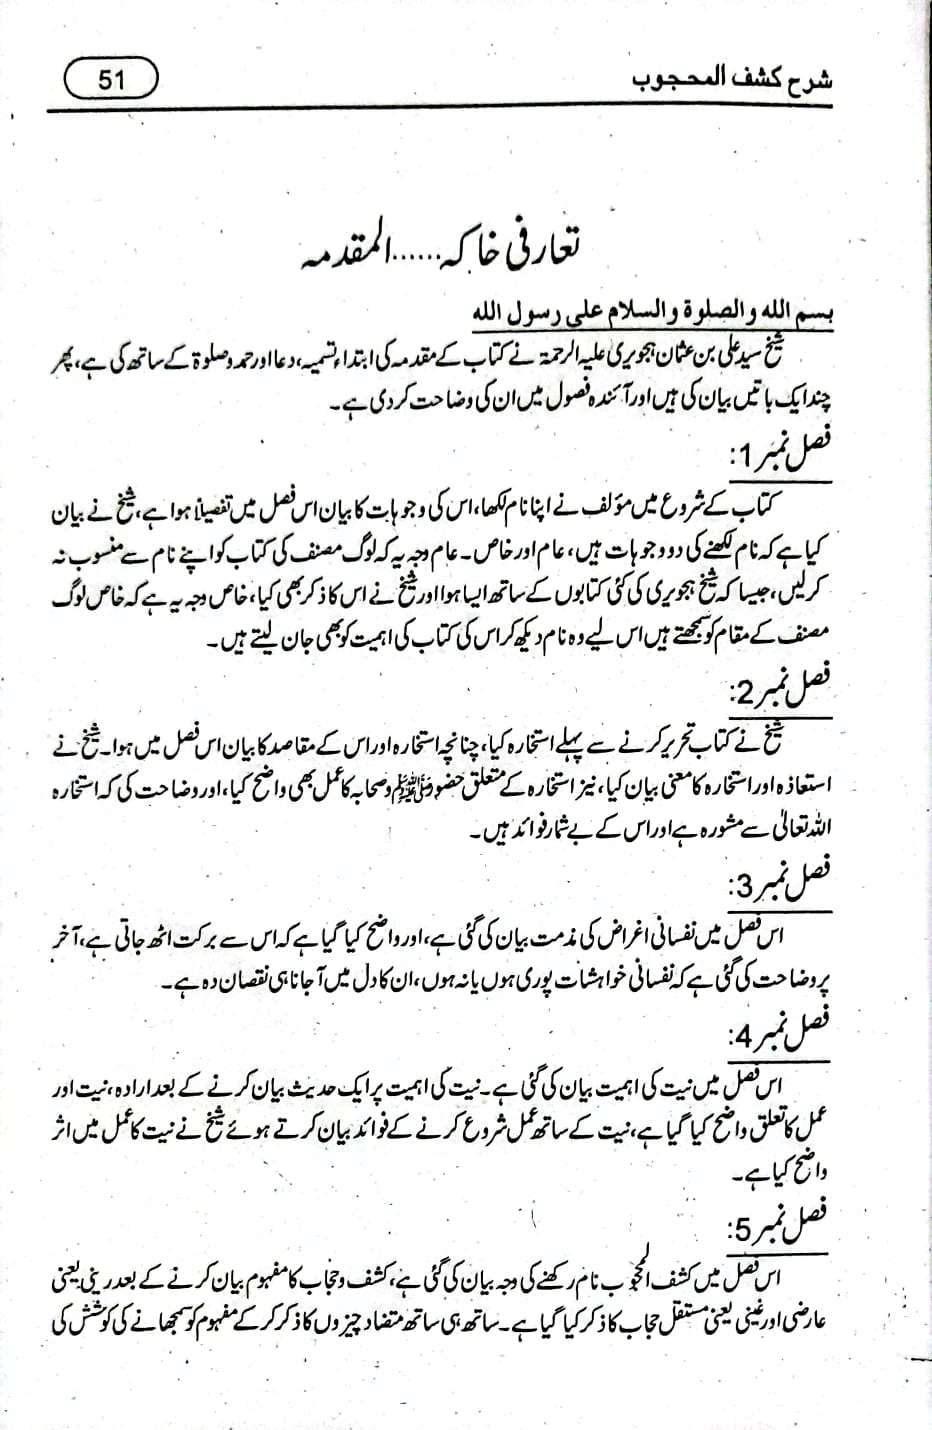 شرح کشف المحجوب
51
تعارفی خاکہ......المقدمہ
بسم الله والصلوة والسلام على رسول الله
شیخ سید علی بن عثمان ہجویری علیہ الرحمۃ نے کتاب کے مقدمہ کی ابتداء تسمیہ، دعا اور حمد و صلوۃ کے ساتھ کی ہے، پھر
چند ایک باتیں بیان کی ہیں اور آئندہ فصول میں ان کی وضاحت کر دی ہے۔
فصل نمبر 1:
کتاب کے شروع میں مؤلف نے اپنا نام لکھا، اس کی وجوہات کا بیان اس فصل میں تفصیلاً ہوا ہے، شیخ نے بیان
کیا ہے کہ نام لکھنے کی دو وجوہات ہیں، عام اور خاص۔ عام وجہ یہ کہ لوگ مصنف کی کتاب کو اپنے نام سے منسوب نہ
کرلیں، جیسا کہ شیخ ہجویری کی کئی کتابوں کے ساتھ ایسا ہوا اور شیخ نے اس کا ذکر بھی کیا، خاص وجہ یہ ہے کہ خاص لوگ
مصنف کے مقام کو سمجھتے ہیں اس لیے وہ نام دیکھ کر اس کی کتاب کی اہمیت کو بھی جان لیتے ہیں۔
فصل نمبر 2:
شیخ نے کتاب تحریر کرنے سے پہلے استخارہ کیا، چنانچہ استخارہ اور اس کے مقاصد کا بیان اس فصل میں ہوا۔ شیخ نے
استعاذہ اور استخارہ کا معنی بیان کیا، نیز استخارہ کے متعلق حضور ﷺ و صحابہ کا عمل بھی واضح کیا، اور وضاحت کی کہ استخارہ
اللہ تعالیٰ سے مشورہ ہے اور اس کے بے شمار فوائد ہیں۔
فصل نمبر 3:
اس فصل میں نفسانی اغراض کی مذمت بیان کی گئی ہے، اور واضح کیا گیا ہے کہ اس سے برکت اٹھ جاتی ہے، آخر
پر وضاحت کی گئی ہے کہ نفسانی خواہشات پوری ہوں یا نہ ہوں، ان کا دل میں آجانا ہی نقصان دہ ہے۔
فصل نمبر 4:
اس فصل میں نیت کی اہمیت بیان کی گئی ہے۔ نیت کی اہمیت پر ایک حدیث بیان کرنے کے بعد ارادہ، نیت اور
عمل کا تعلق واضح کیا گیا ہے، نیت کے ساتھ عمل شروع کرنے کے فوائد بیان کرتے ہوئے شیخ نے نیت کا عمل میں اثر
واضح کیا ہے۔
فصل نمبر 5:
اس فصل میں کشف المحجوب نام رکھنے کی وجہ بیان کی گئی ہے، کشف و حجاب کا مفہوم بیان کرنے کے بعد رینی یعنی
عارضی اور غینی یعنی مستقل حجاب کا ذکر کیا گیا ہے۔ ساتھ ہی ساتھ متضاد چیزوں کا ذکر کر کے مفہوم کو سمجھانے کی کوشش کی